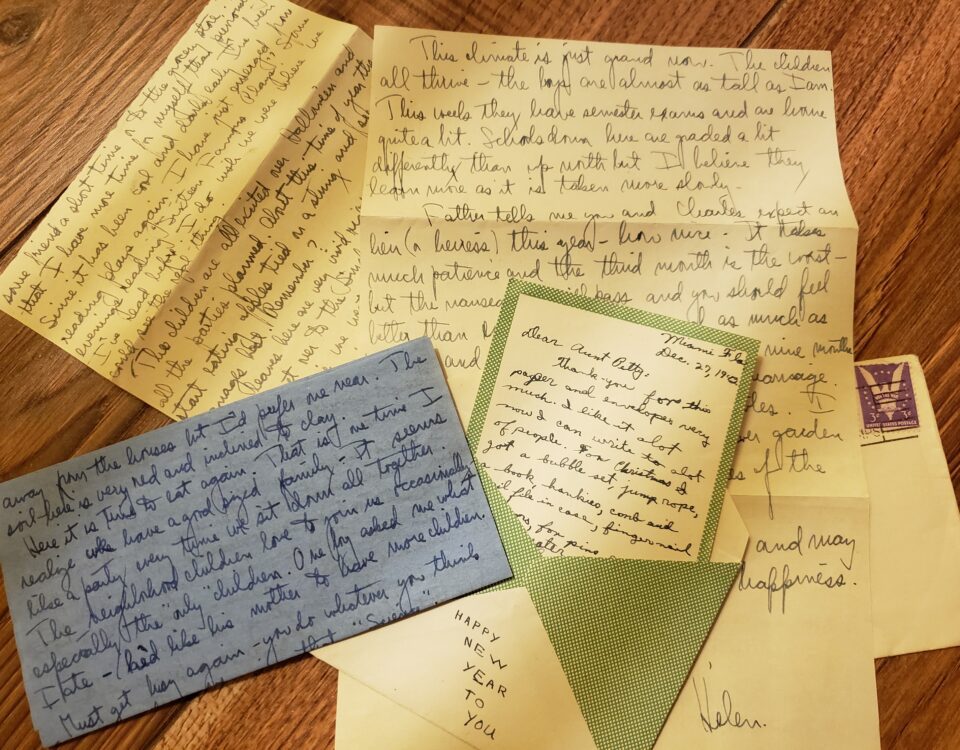 since I need a short time in to the grocery store.
that I have more time for myself than previous
Since it has been cool and dark early I've been
reading plays again. I have just emerged from
evenings reading "Sixteen Famous Plays". Some
I've read before. I do wish we were where we
could see these things
The children are all excited over Halloween and
all the parties planned about this time of year they
start eating apples tied on a string and
laughs, too! Remember?
leaves here are very
over to the
This climate is just grand now. The children
all thrive – the boys are almost as tall as I am.
This week they have semester exams and are home
quite a bit. Schools down here are graded a bit
differently than up north but I believe they
learn more as it is taken more slowly.
Father tells me you and Charles expect an
heir (or heiress) this year – how nice. It takes
much patience and the third month is the worst –
but the nausea will pass and you should feel
as much as
better than
nine months
and
massage.
I
garden
of the
and may
happiness.
Helen.
away from the houses but I'd prefer me near. The
soil here is very red and inclined to clay.
Here it is time to eat again. That is one time I
realize we have a good sized family – it seems
like a party every time we sit down all together.
The neighborhood children love to join us occasionally
especially the "only" children. One boy asked me what
I ate – he'd like his mother to have more children.
Must get busy again – you do whatever you think
that "Science"
Miami Fla.
Dec. 27, 19
Dear Aunt Betty,
Thank you for this
paper and envelopes very
much. I like it alot
now I can write to alot
of people. On Christmas I
got a bubble set, jump rope,
a book, hankies, comb and
file in case, fingernail
bob pins
HAPPY
NEW
YEAR
TO
YOU
WIN THE WAR
3¢ 3¢
UNITED STATES POSTAGE